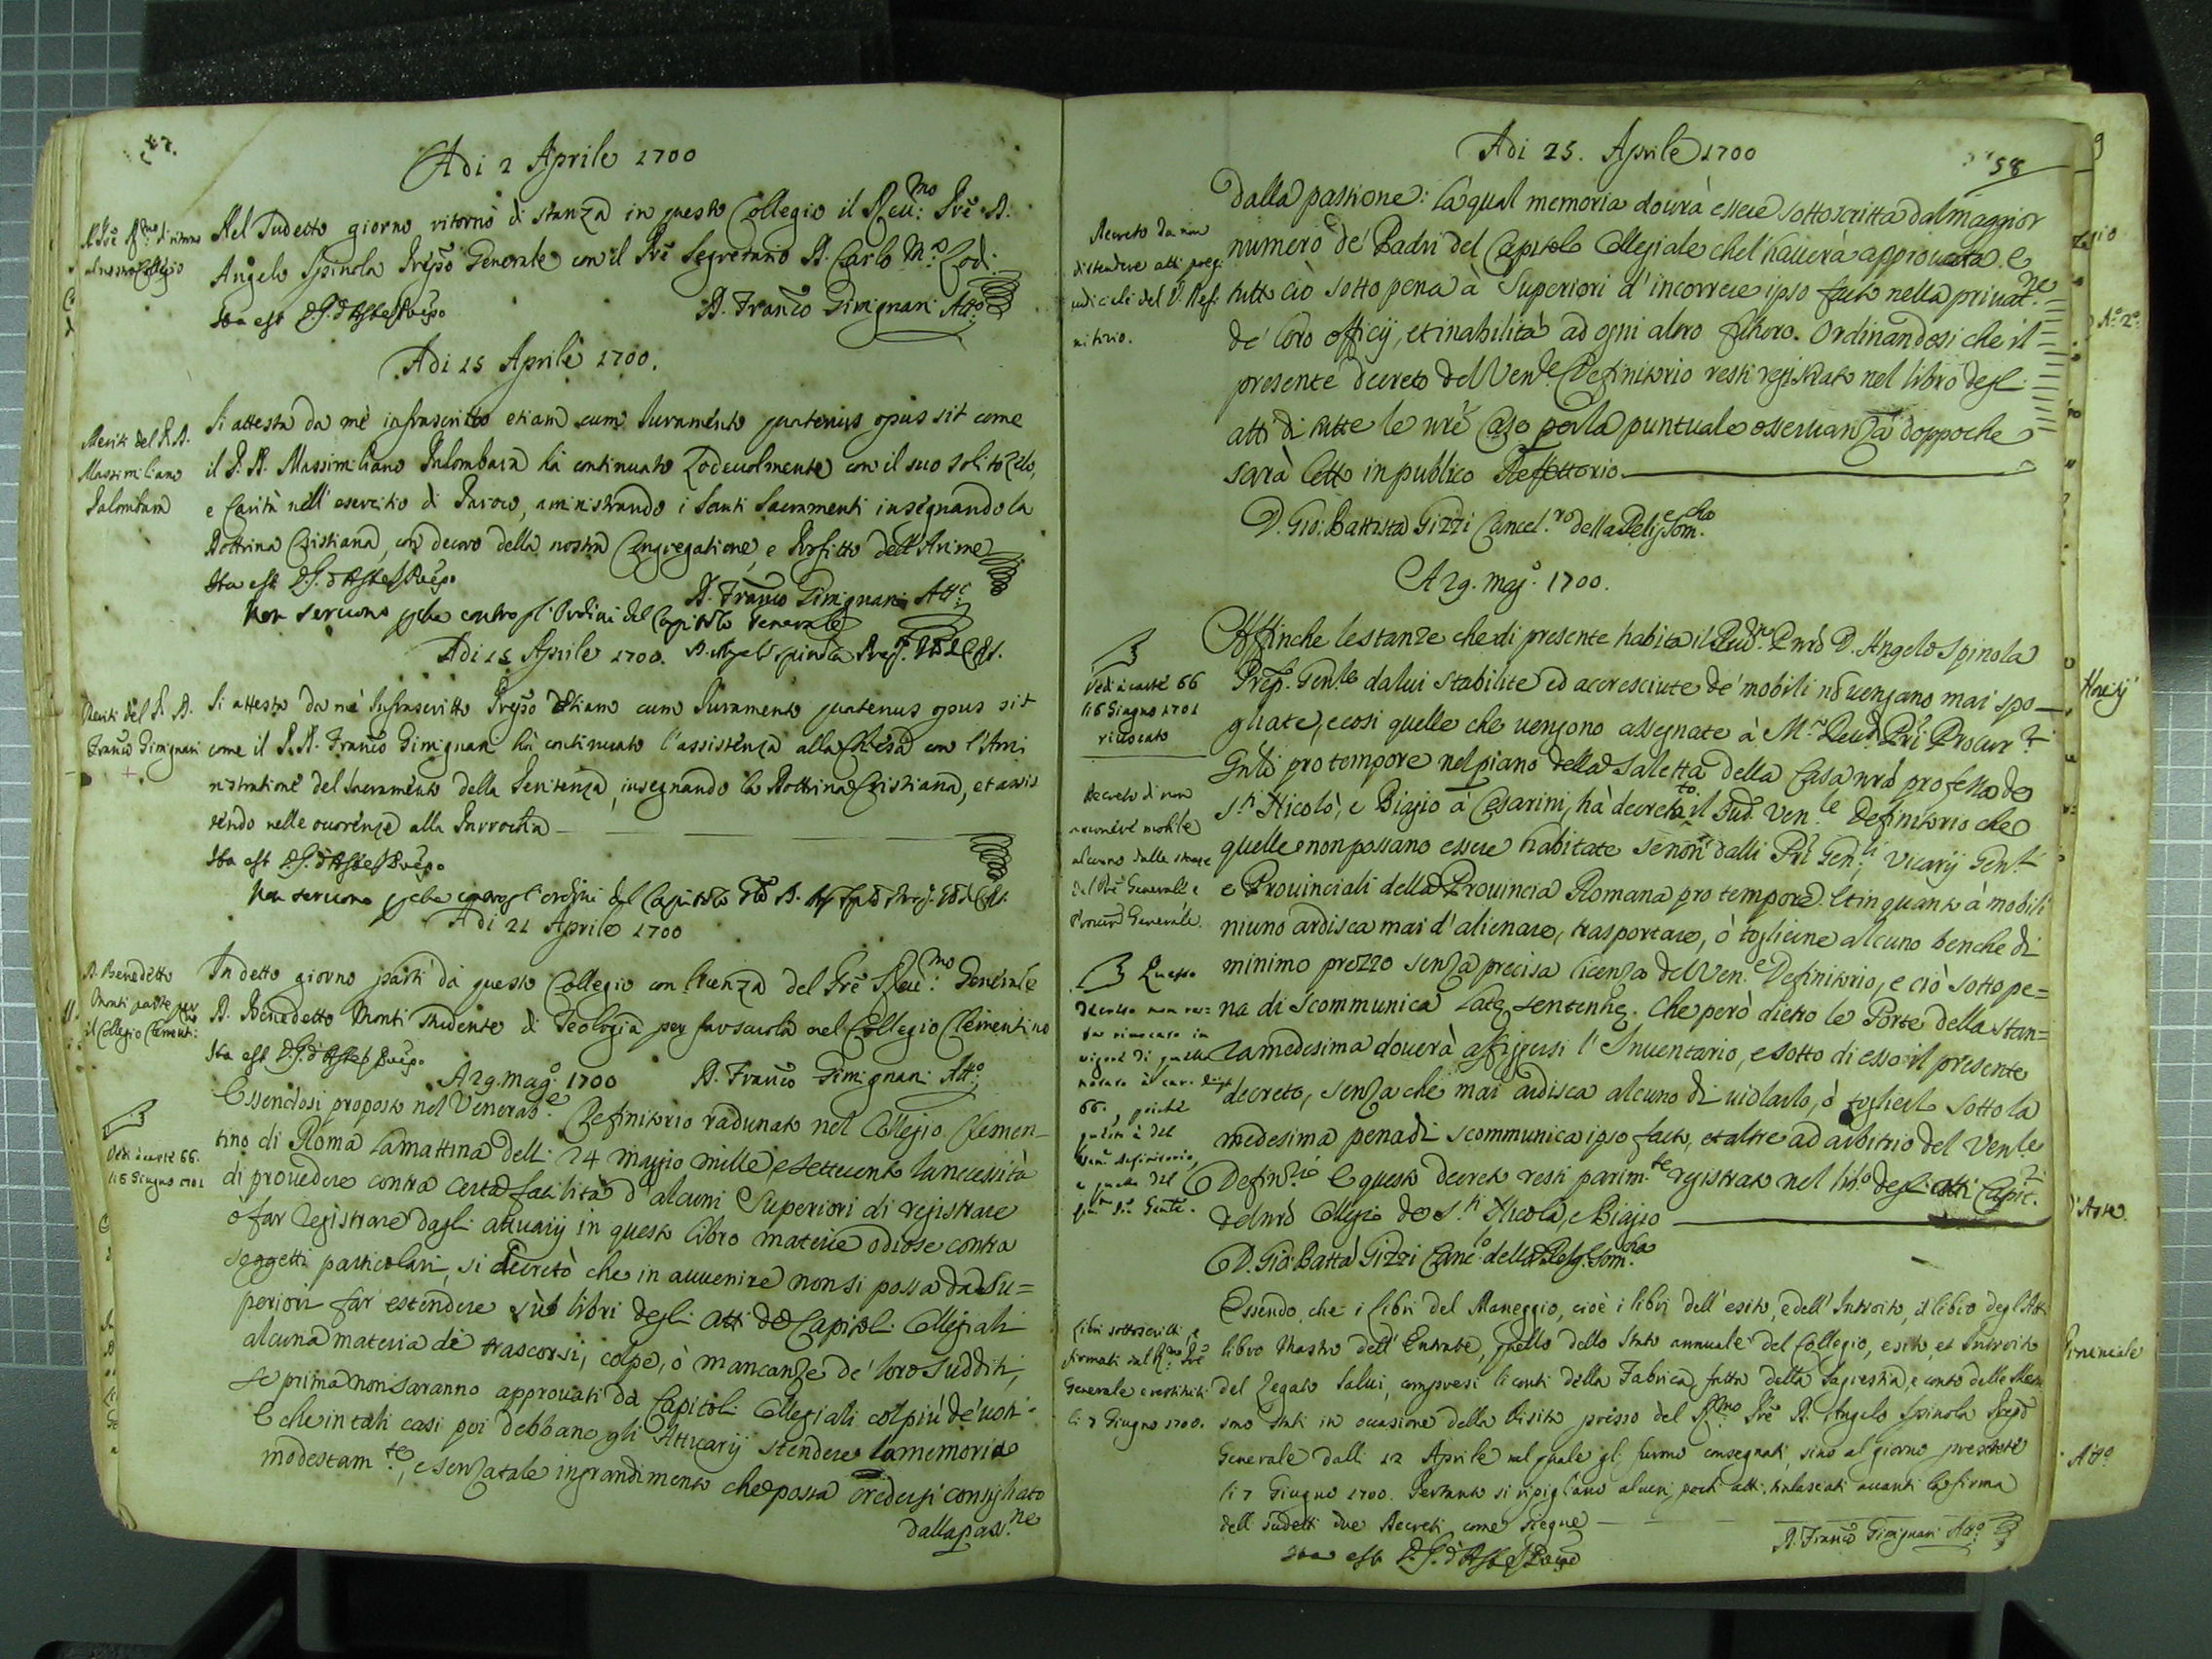 57.
Adi 2 Aprile 1700
Il Prē R.mo di ritorno
al nostro Collegio
Nel sudetto giorno ritornò di stanza in questo Collegio il Reu:mo Prē D.
Angelo Spinola Prepō Generale con il Prē Segretario D. Carlo M.a Lodi.
Ita est D.G. d'Aste Prep.o
D. Franco Gimignani Att.o
Adi 15 Aprile 1700.
Meriti del P. D.
Massimiliano
Palombara
Si attesta da mè infrascritto etiam cum Iuramento quatenus opus sit come
il P. D. Massimiliano Palombara hà continuato Lodeuolmente con il suo solito zelo,
e Carità nell' esercitio di Paroco, aministrando i Santi Sacramenti insegnando la
Dottrina Cristiana, con decoro della nostra Congregatione, e Profitto dell'Anime
Ita est D.G. d'Aste Prep.o
D. Franco Gimignani Att.o
Non seruono pche contro gl'Ordini del Capitolo Generale
D. Angelo Spinola Prep.
Adi 15 Aprile 1700.
Meriti del P. D.
Franco Gimignani
Si attesta da mè Infrascritto Prepō Etiam cum Iuramento quatenus opus sit
come il P. D. Franco Gimignani hà continuato l'assistenza alla Chiesa con l'Ami
nistratione del Sacramento della Penitenza, insegnando la Dottrina Cristiana, et assis
tendo nelle occorrenze alla Parrochia
Ita est D.G. d'Aste Prep.o
Non seruono pche contro gl'ordini del Capitolo
Adi 21 Aprile 1700
D. Benedetto
Monti parte per
il Collegio Clement:no
In detto giorno partì da questo Collegio con licenza del Prē Reu:mo Generale
D. Benedetto Monti studente di Teologia per far scuola nel Collegio Clementino
Ita est D.G. d'Aste Prep.o
D. Franco Gimignani Att.o
A 29. mag.o 1700
Vedi à carte 66.
li 6 Giugno 1701
Essendosi proposto nel Venerab.e Definitorio radunato nel Collegio Clemen-
tino di Roma la mattina delli 24 maggio mille e settecento la necessità
di prouedere contra certa facilità d'alcuni Superiori di registrare
ò far registrare dagli attuarij in questo libro materie odiose contra
soggetti particolari, si decretò che in auuenire non si possa da Su=
periori far estendere sù i libri degli atti de Capitoli Collegiali
alcuna materia de trascorsi, colpe, ò mancanze de' loro sudditi,
se prima non saranno approuati da Capitoli Collegiali col più de' uoti.
E che in tali casi poi debbano gli Attuarij stendere la memoria
modestam.te, e senza tale ingrandimento che possa credersi consigliato
dalla pass.ne
Adi 25. Aprile 1700
58
Decreto da non
distendere atti pregi
udiciali del V. Defi
nitorio.
dalla passione: la qual memoria dourà essere sottoscritta dal maggior
numero de' Padri del Capitolo Collegiale che l'hauerà approuata. e
tutto ciò sotto pena à Superiori d'incorrere ipso facto nella priuat.ne
de' loro officij, et inabilità ad ogni altro futuro. Ordinandosi che il
presente decreto del Ven.e Definitorio resti registrato nel libro degl
atti di tutte le nrē Case per la puntuale osseruanza doppo che
sarà letto in publico Reffettorio.
D. Gio: Battista Gizzi Cancel.ro della Relig.e Som.cha
A 29. mag.o 1700.
Vedi à carte 66
li 6 Giugno 1701
riuocato
Decreto di non
rimuouere mobile
alcuno dalle stanze
del Prē Generale e
Procur Generale.
Affinche le stanze che di presente habita il Reud.mo P. nrō D. Angelo Spinola
Prep. Gen.le da lui stabilite ed accresciute de' mobili nō uengano mai spo-
gliate, e così quelle che uengono assegnate à M. Reud. Pri Procur.ri
Gnli pro tempore nel piano della Saletta della Casa nrā professa de
S.ti Nicolò, e Biagio à Cesarini, hà decretato il sud. Ven.le Definitorio che
quelle non possano essere habitate senon dalli Pri Gen.li, Vicarij Gen.li
e Prouinciali della Prouincia Romana pro tempore. Et in quanto à mobili
niuno ardisca mai d'alienare, trasportare, ò toglierne alcuno benche di
minimo prezzo senza precisa licenza del Ven.e Definitorio, e ciò sotto pe=
na di Scommunica latę sententię. Che però dietro le Porte della stan=
za medesima douerà affiggersi l'Inuentario, e sotto di esso il presente
decreto, senza che mai ardisca alcuno di uiolarlo, ò toglierlo sotto la
medesima pena di scommunica ipso facto, et altre ad arbitrio del Ven.le
Defin.rio E questo decreto resti parim.te registrato nel lib.o degli atti Capit.ri
del nrō Collegio de S.ti Nicola, e Biagio
Questo
Decreto non res-
ta riuocato in
uigore di quello
notato à car.
66., poiche
questo è del
Ven. Definitorio,
e quello del
D. Gio: Batta Gizzi Canc.o della Relig. Som.cha
Libri sottoscritti, e
firmati dal R.mo Prē
Generale e restituiti
li 7 Giugno 1700.
Essendo che i libri del Maneggio, cioè i libri dell'esito, e dell'Introito, il libro degl'Atti
libro Mastro dell'Entrate, quello dello Stato annuale del Collegio, esito, et Introito
del Legato Salui, compresi li conti della Fabrica fatta della Sagrestia, e conto delle Messe
sino stati in occasione della Visita presso del R.mo Prē D. Angelo Spinola Prepō
Generale dalli 12 Aprile nel quale gli furno consegnati, sino al giorno presente
li 7 Giugno 1700. Pertanto si ripigliano alcuni pochi atti tralasciati auanti la firma
delli sudetti due Decreti come siegue
D. Franco Gimignani Att.o
Ita est D.G. d'Aste Prep.o